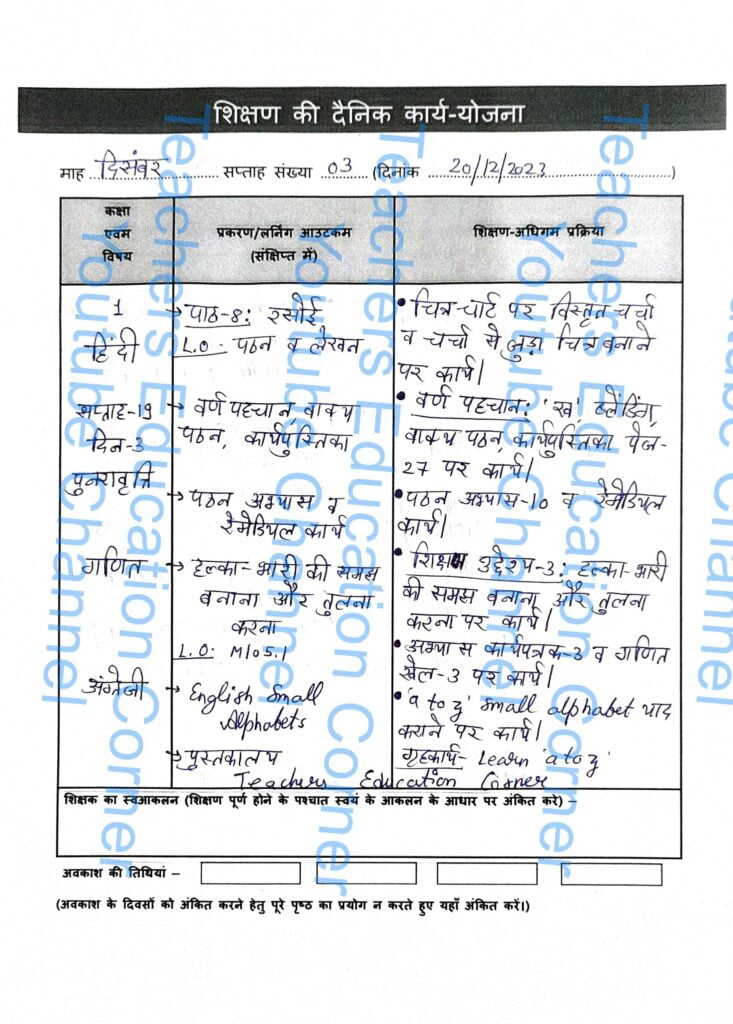 शिक्षण की दैनिक कार्य-योजना
माह दिसंबर सप्ताह संख्या 03 (दिनांक 20/12/2023)
कक्षा एवम विषय
प्रकरण/लर्निंग आउटकम (संक्षिप्त में)
शिक्षण-अधिगम प्रक्रिया
1
हिंदी
सप्ताह-19
दिन-3
पुनरावृत्ति
→ पाठ-8: रसोई
L.O - पठन व लेखन
→ वर्ण पहचान वाक्य
पठन, कार्यपुस्तिका
→ पठन अभ्यास व
रेमेडियल कार्य
• चित्र-चार्ट पर विस्तृत चर्चा
व चर्चा से जुड़ा चित्र बनाने
पर कार्य।
• वर्ण पहचान: 'ख', ब्लेंडिंग,
वाक्य पठन, कार्यपुस्तिका पेज-
27 पर कार्य।
• पठन अभ्यास-10 व रेमेडियल
कार्य।
गणित
→ हल्का-भारी की समझ
बनाना और तुलना
करना
L.O. M105.1
• शिक्षण उद्देश्य-3: हल्का-भारी
की समझ बनाना और तुलना
करना पर कार्य।
• अभ्यास कार्यपत्रक-3 व गणित
खेल-3 पर कार्य।
अंग्रेजी
→ English Small
Alphabets
→ पुस्तकालय
• 'a to z' small alphabet याद
कराने पर कार्य।
गृहकार्य- Learn 'a to z'
Teachers Education Corner
शिक्षक का स्वआकलन (शिक्षण पूर्ण होने के पश्चात स्वयं के आकलन के आधार पर अंकित करे) –
अवकाश की तिथियां –
(अवकाश के दिवसों को अंकित करने हेतु पूरे पृष्ठ का प्रयोग न करते हुए यहाँ अंकित करें।)
Teachers Education Corner
Youtube Channel
Teachers Education Corner
Youtube Channel
Teachers Education Corner
Youtube Channel